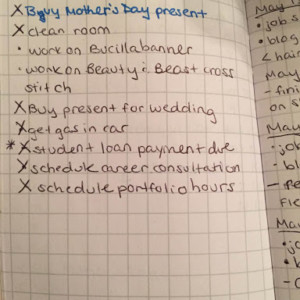 X Buy Mother's Day present
X clean room
• work on Bucilla banner
• work on Beauty & Beast cross
stitch
X Buy present for wedding
X get gas in car
* X student loan payment due
X schedule career consultation
X schedule portfolio hours
May
• job s
• blog
< hair
May
- fini
on s
May
• job
- bl
Fle
May
• jo